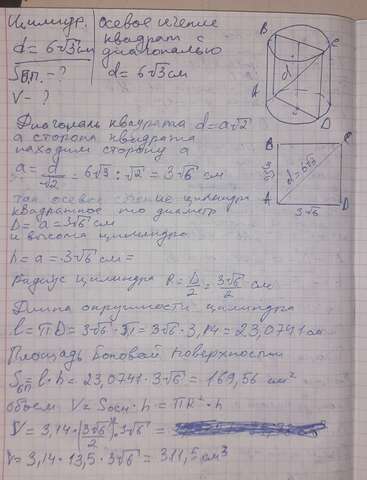 Цилиндр. осевое сечение
квадрат с
d = 6√3см диагональю
d = 6√3 см
Sбп. - ?
V - ?
B C
d
A D
Диагональ квадрата d = a√2
а сторона квадрата
находим сторону а
a = d/√2 = 6√3 : √2 = 3√6 см
B C
3√6 d = 6√3
A D
3√6
так осевое сечение цилиндра
квадратное то диаметр
D = a = 3√6 см
и высота цилиндра
h = a = 3√6 см =
Радиус цилиндра R = D/2 = 3√6/2 см
Длина окружности цилиндра
l = πD = 3√6 · π = 3√6 · 3,14 = 23,0741 см
Площадь боковой поверхности
Sбп = l · h = 23,0741 · 3√6 = 169,56 см²
объем V = Sосн · h = πR² · h
V = 3,14 · (3√6/2)² · 3√6 =
V = 3,14 · 13,5 · 3√6 = 311,5 см³